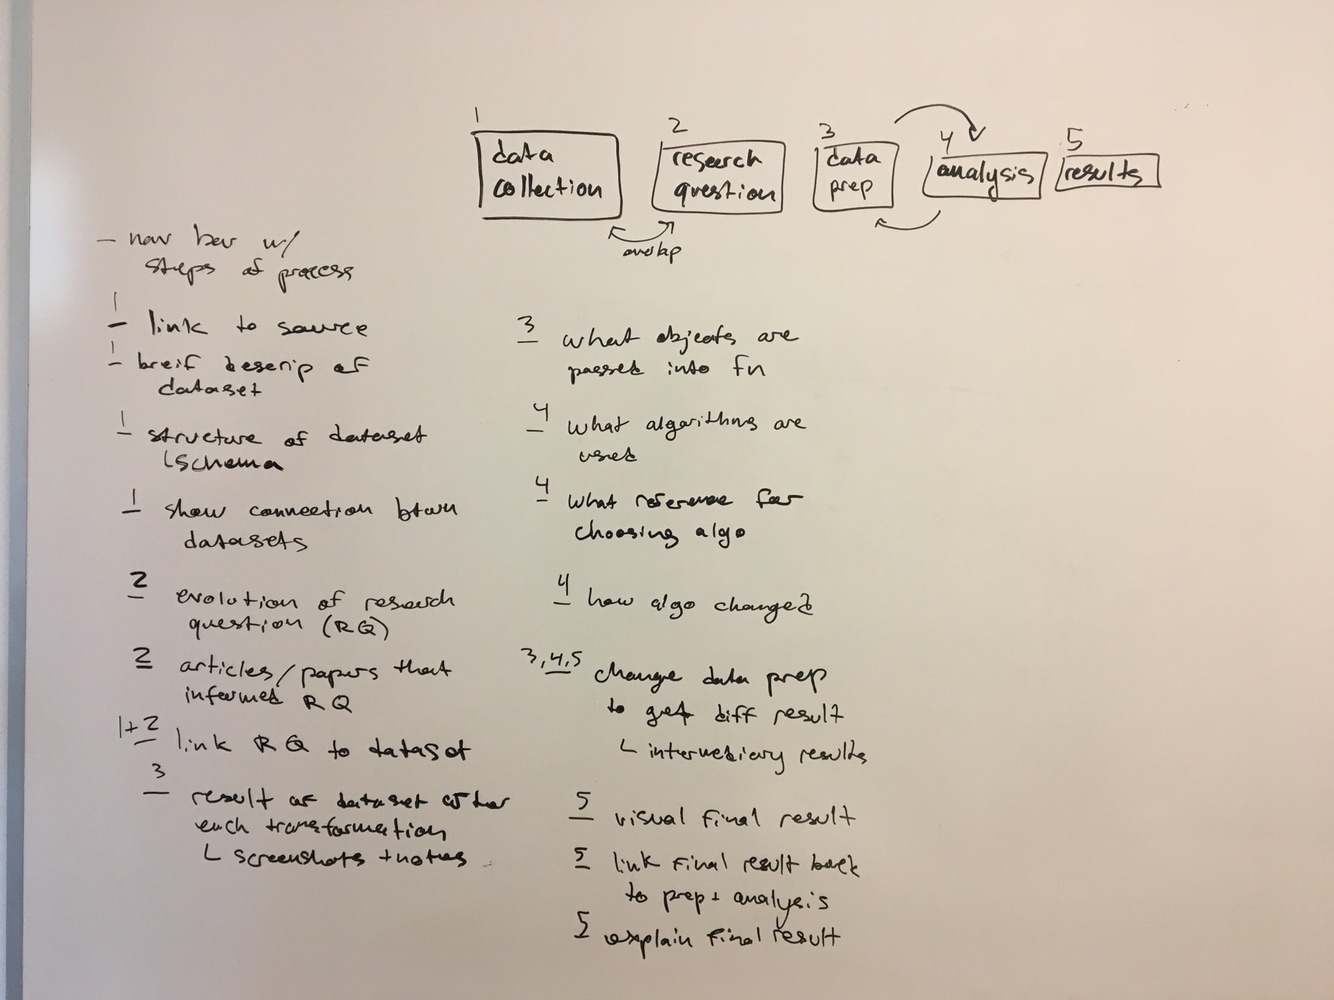 1
data
collection
2
research
question
3
data
prep
4
analysis
5
results
overlap
- nav bar w/
steps of process
1
- link to source
1
- breif descrip of
dataset
1
- structure of dataset
└ schema
1
- show connection btwn
datasets
2
- evolution of research
question (RQ)
2
- articles/papers that
informed RQ
1+2
- link RQ to dataset
3
- result of dataset after
each transformation
└ screenshots + notes
3
- what objects are
passed into fn
4
- what algorithms are
used
4
- what reference for
choosing algo
4
- how algo changed
3,4,5
- change data prep
to get diff result
└ intermediary results
5
- visual final result
5
- link final result back
to prep + analysis
5
- explain final result